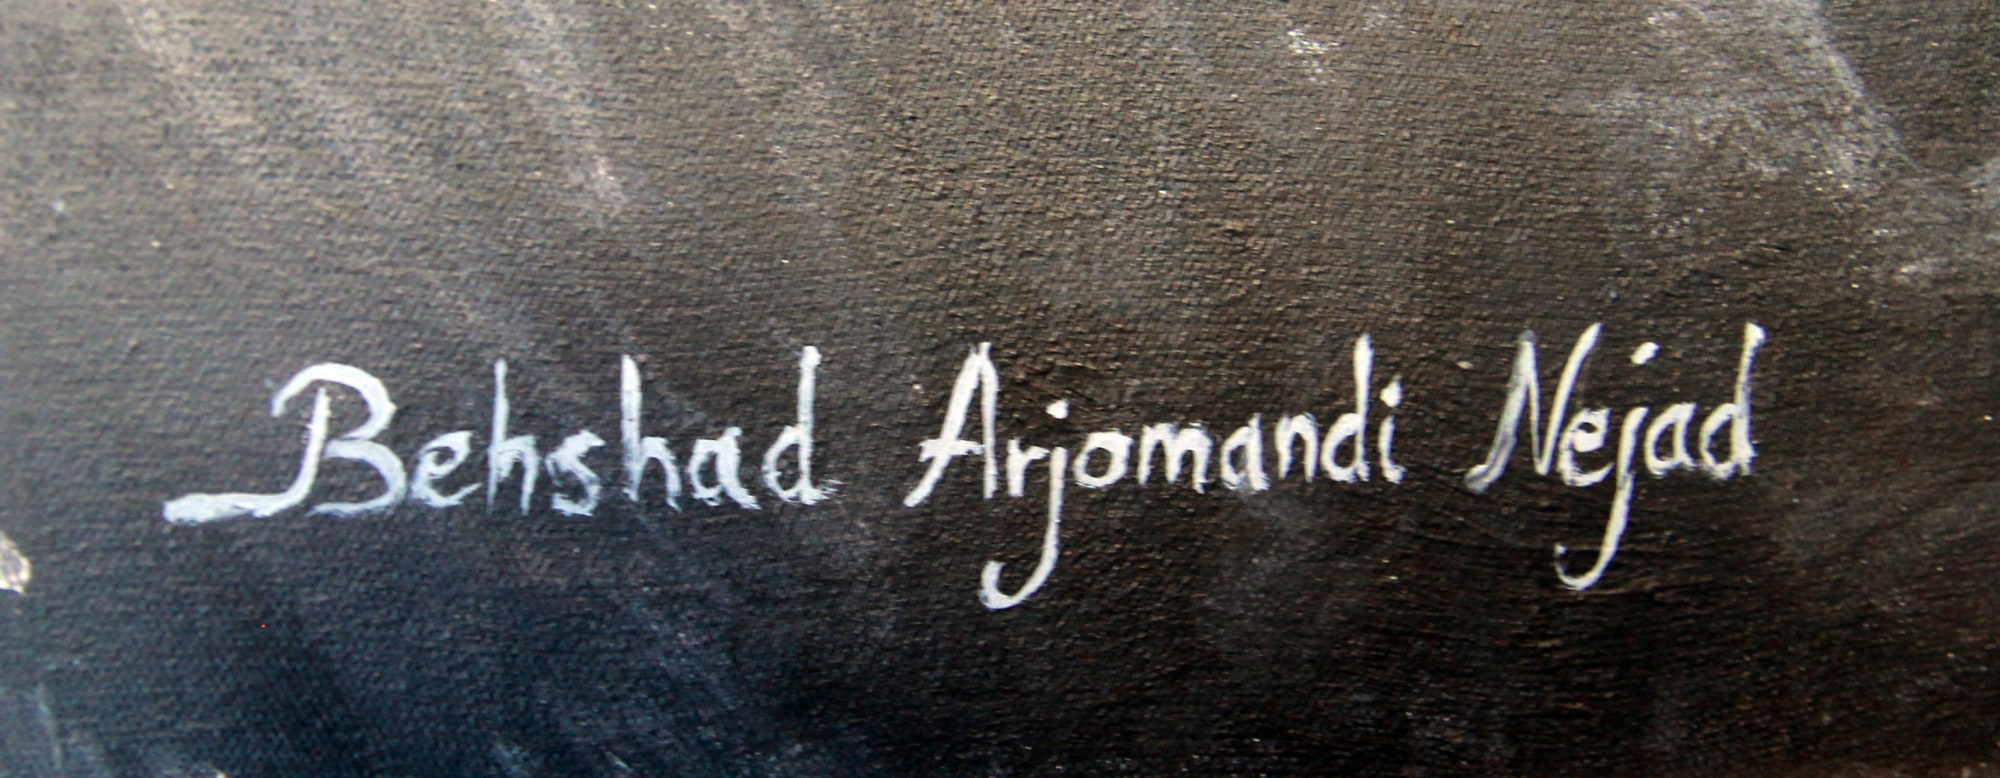 Behshad Arjomandi Nejad